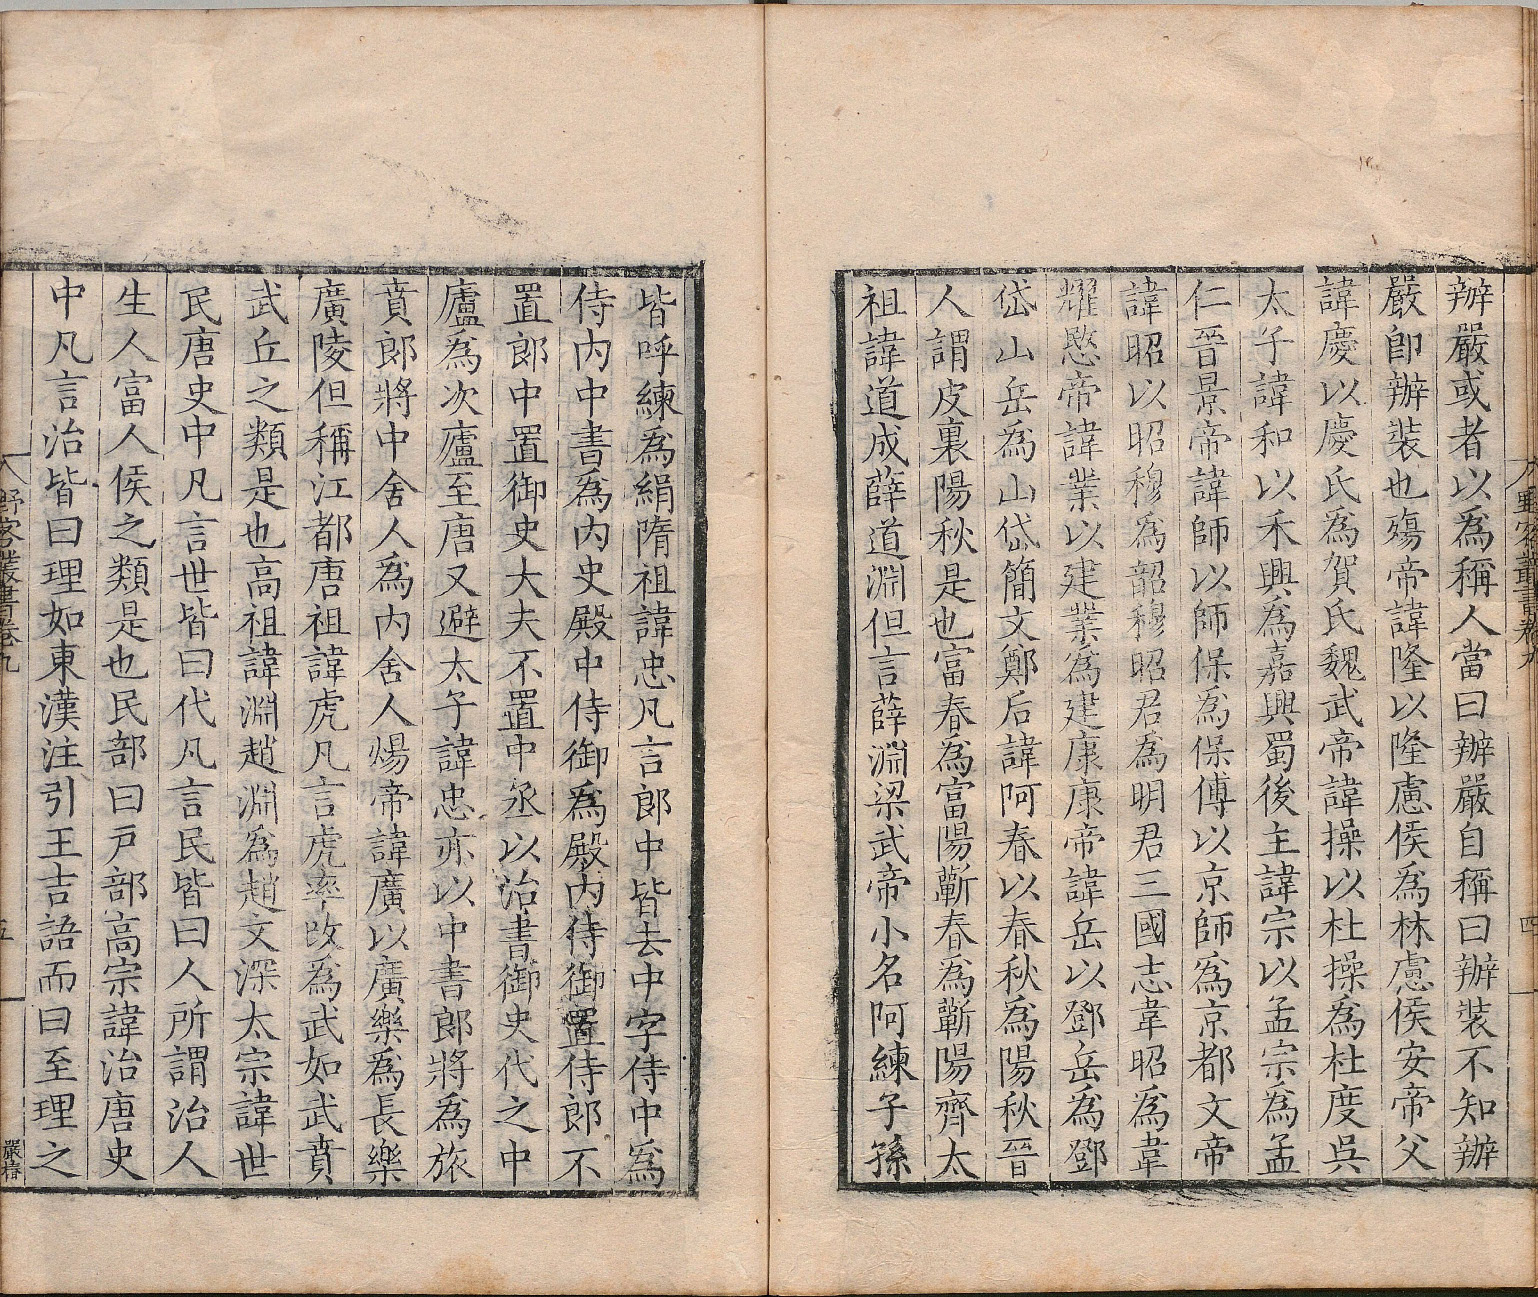 辦嚴或者以爲稱人當曰辦嚴自稱曰辦裝不知辦
嚴卽辦裝也殤帝諱隆以隆慮侯爲林慮侯安帝父
諱慶以慶氏爲賀氏魏武帝諱操以杜操爲杜度吳
太子諱和以禾興爲嘉興蜀後主諱宗以孟宗爲孟
仁晉景帝諱師以師保爲保傅以京師爲京都文帝
諱昭以昭穆爲韶穆昭君爲明君三國志韋昭爲韋
耀愍帝諱業以建業爲建康康帝諱岳以鄧岳爲鄧
岱山岳爲山岱簡文鄭后諱阿春以春秋爲陽秋晉
人謂皮裏陽秋是也富春為富陽蘄春爲蘄陽齊太
祖諱道成薛道淵但言薛淵梁武帝小名阿練子孫
野客叢書卷九
四
皆呼練爲絹隋祖諱忠凡言郎中皆去中字侍中爲
侍內中書爲內史殿中侍御爲殿內侍御置侍郎不
置郎中置御史大夫不置中丞以治書御史代之中
廬爲次廬至唐又避太子諱忠亦以中書郎將爲旅
賁郎將中舍人爲內舍人煬帝諱廣以廣樂爲長樂
廣陵但稱江都唐祖諱虎凡言虎率改爲武如武賁
武丘之類是也高祖諱淵趙淵爲趙文深太宗諱世
民唐史中凡言世皆曰代凡言民皆曰人所謂治人
生人富人侯之類是也民部曰戶部高宗諱治唐史
中凡言治皆曰理如東漢注引王吉語而曰至理之
野客叢書卷九
五
嚴椿